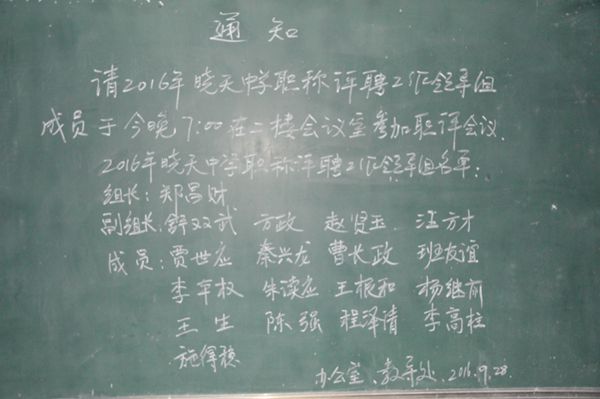 通知
请2016年晓天中学职称评聘工作领导组
成员于今晚7:00在二楼会议室参加职评会议.
2016年晓天中学职称评聘工作领导组名单:
组长:郑昌财
副组长:舒双武 方政 赵贤玉 汪方才
成员:贾世应 秦兴龙 曹长政 班友谊
李军权 朱读应 王根和 杨继前
王生 陈强 程泽请 李高柱
施得稳
办公室、教导处.2016.9.28.